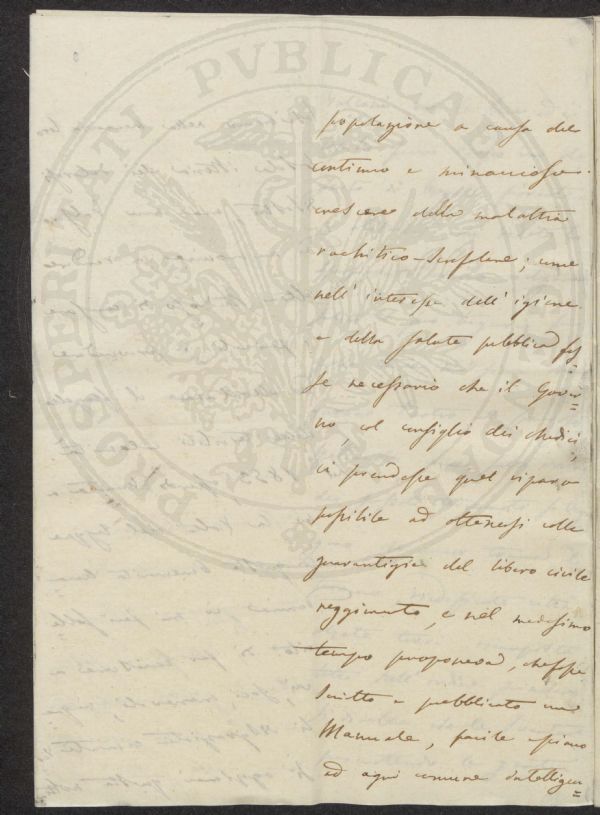 PROSPERITATI PVBLICAE
popolazione a causa del
continuo e minaccioso
crescere della malattia
rachitico-scrofolare; come
nell' interesse dell' igiene
e della salute pubblica fos=
se necessario che il Gover=
no, col consiglio dei Medici,
ci prendesse quel riparo
possibile ad ottenersi colle
guarantigie del libero civile
reggimento, e nel medesimo
tempo proponeva, che fosse
scritto e pubblicato un
Manuale, facile e piano
ad ogni comune intelligen=